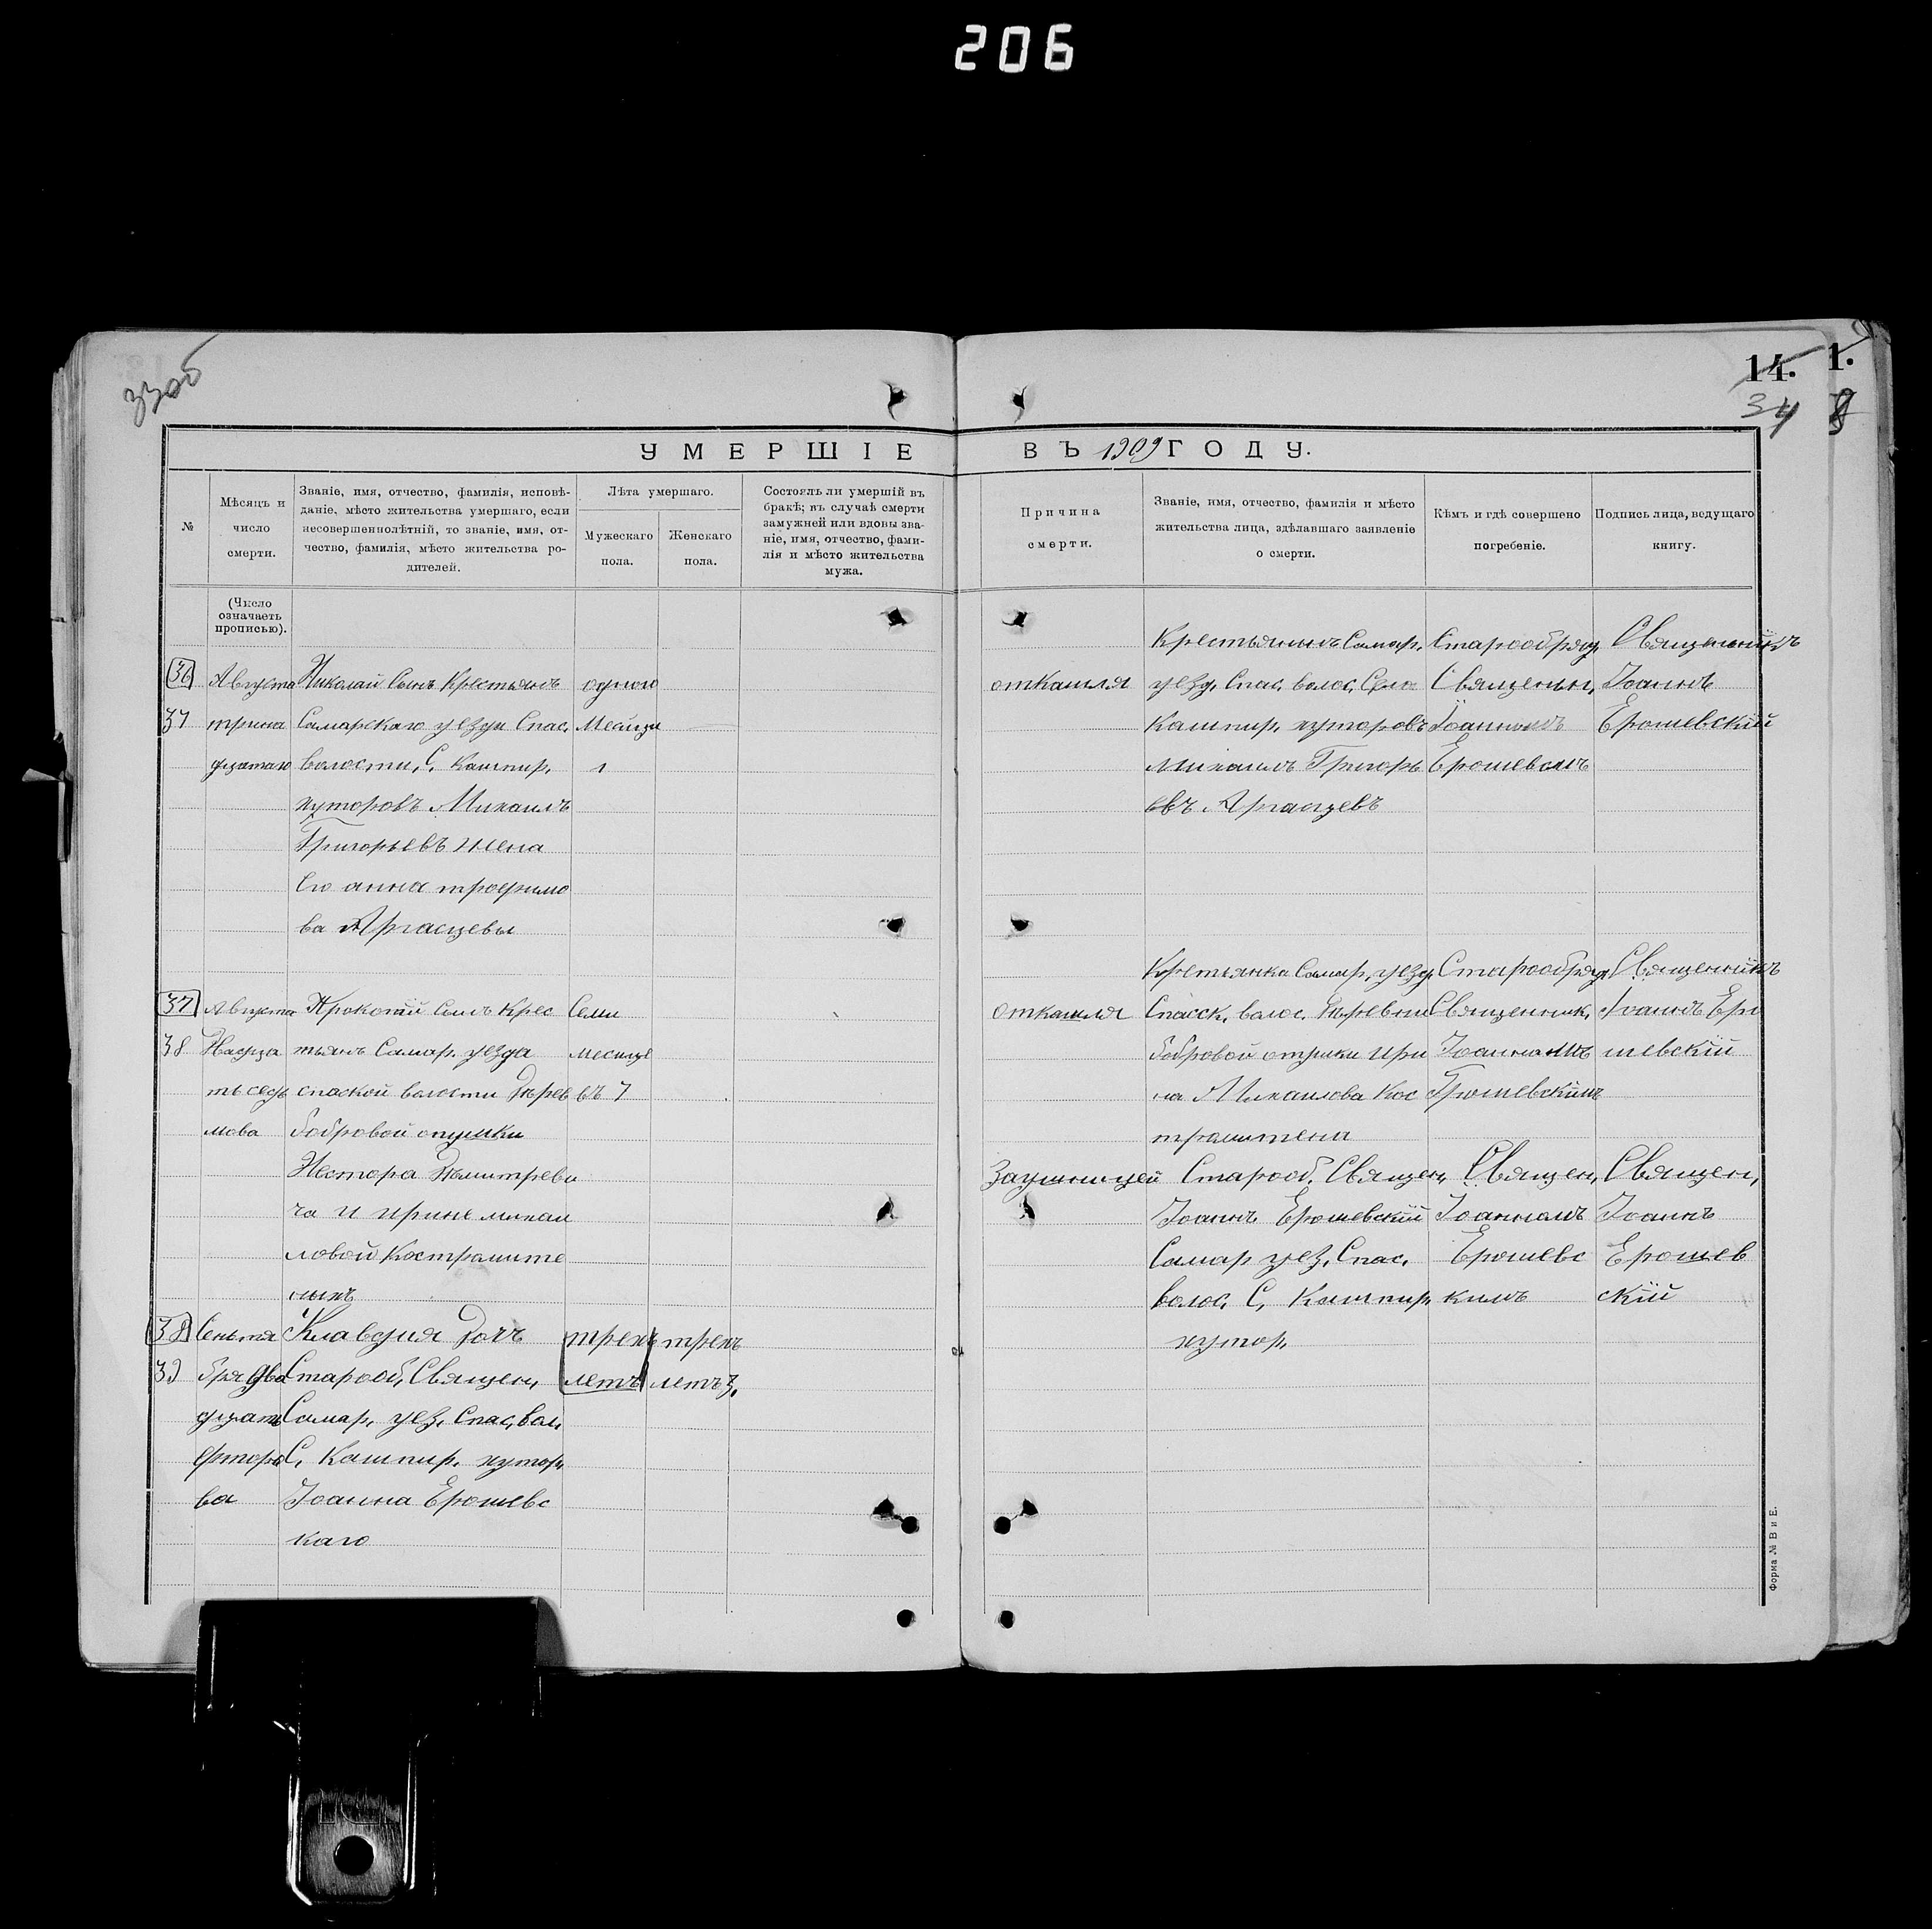 206
33об
14.
1.
34
8
УМЕРШІЕ ВЪ 1909 ГОДУ.
№
Мѣсяцъ и
число
смерти.
Званіе, имя, отчество, фамилія, исповѣ-
даніе, мѣсто жительства умершаго, если
несовершеннолѣтній, то званіе, имя, от-
чество, фамилія, мѣсто жительства ро-
дителей.
Лѣта умершаго.
Мужескаго
пола.
Женскаго
пола.
Состоялъ ли умершій въ
бракѣ; въ случаѣ смерти
замужней или вдовы зва-
ніе, имя, отчество, фами-
лія и мѣсто жительства
мужа.
Причина
смерти.
Званіе, имя, отчество, фамилія и мѣсто
жительства лица, здѣлавшаго заявленіе
о смерти.
Кѣмъ и гдѣ совершено
погребеніе.
Подпись лица, ведущаго
книгу.
(Число
означаетъ
прописью).
36
37
Августа
трина
дцатаго
Николай Сынъ Крестьянъ
Самарскаго уезда Спас.
волости, С, Кашпир,
хуторовъ Михаилъ
Григорьевъ жена
Его анна трофимо
ва Аргасцевы
одного
Месяца
1
откашля
Крестьянинъ Самар,
уезд, Спас, волос, Село
Кашпир, хуторовъ
Михаилъ Григорь
евъ Аргасцевъ
Старообряд,
Священын,
Іоанномъ
Ерошевскмъ
Священникъ
Іоаннъ
Ерошевскій
37
38
Августа
Надца
ть седь
мова
Прокопій Сынъ Крес
тьянъ Самар. уезда
спаской волости Дерев
бобровой опушки
Нестора Дьмитреви
ча и ирине михаи
ловой Костромите
ныхъ
Семи
месяце
въ 7
откашля
Крестьянка Самар, уезд,
Спасск, волос. Деревни
бобровой отушки ири
на Михаилова Кос
тромитена
Старообряд,
Священник,
Іоанномъ
Ерошевскимъ
Священникъ
Іоаннъ Еро
шевскій
38
39
Сентя
бря два
дцать
фторо
ва
Клавдия Дочъ
Старооб, Священ,
Самар, уез, Спас, вол,
С, Кашпир, хутор,
Іоанна Ерошевс
каго
трехъ
летъ
трехъ
летъ 3,
Заушницей
Старооб, Священ,
Іоаннъ Ерошевскій
Самар уез, Спас,
волос, С, Кашпир,
хутор,
Священ,
Іоанномъ
Ерошевс
кимъ
Священ,
Іоаннъ
Ерошев
скій
Форма № В и Е.